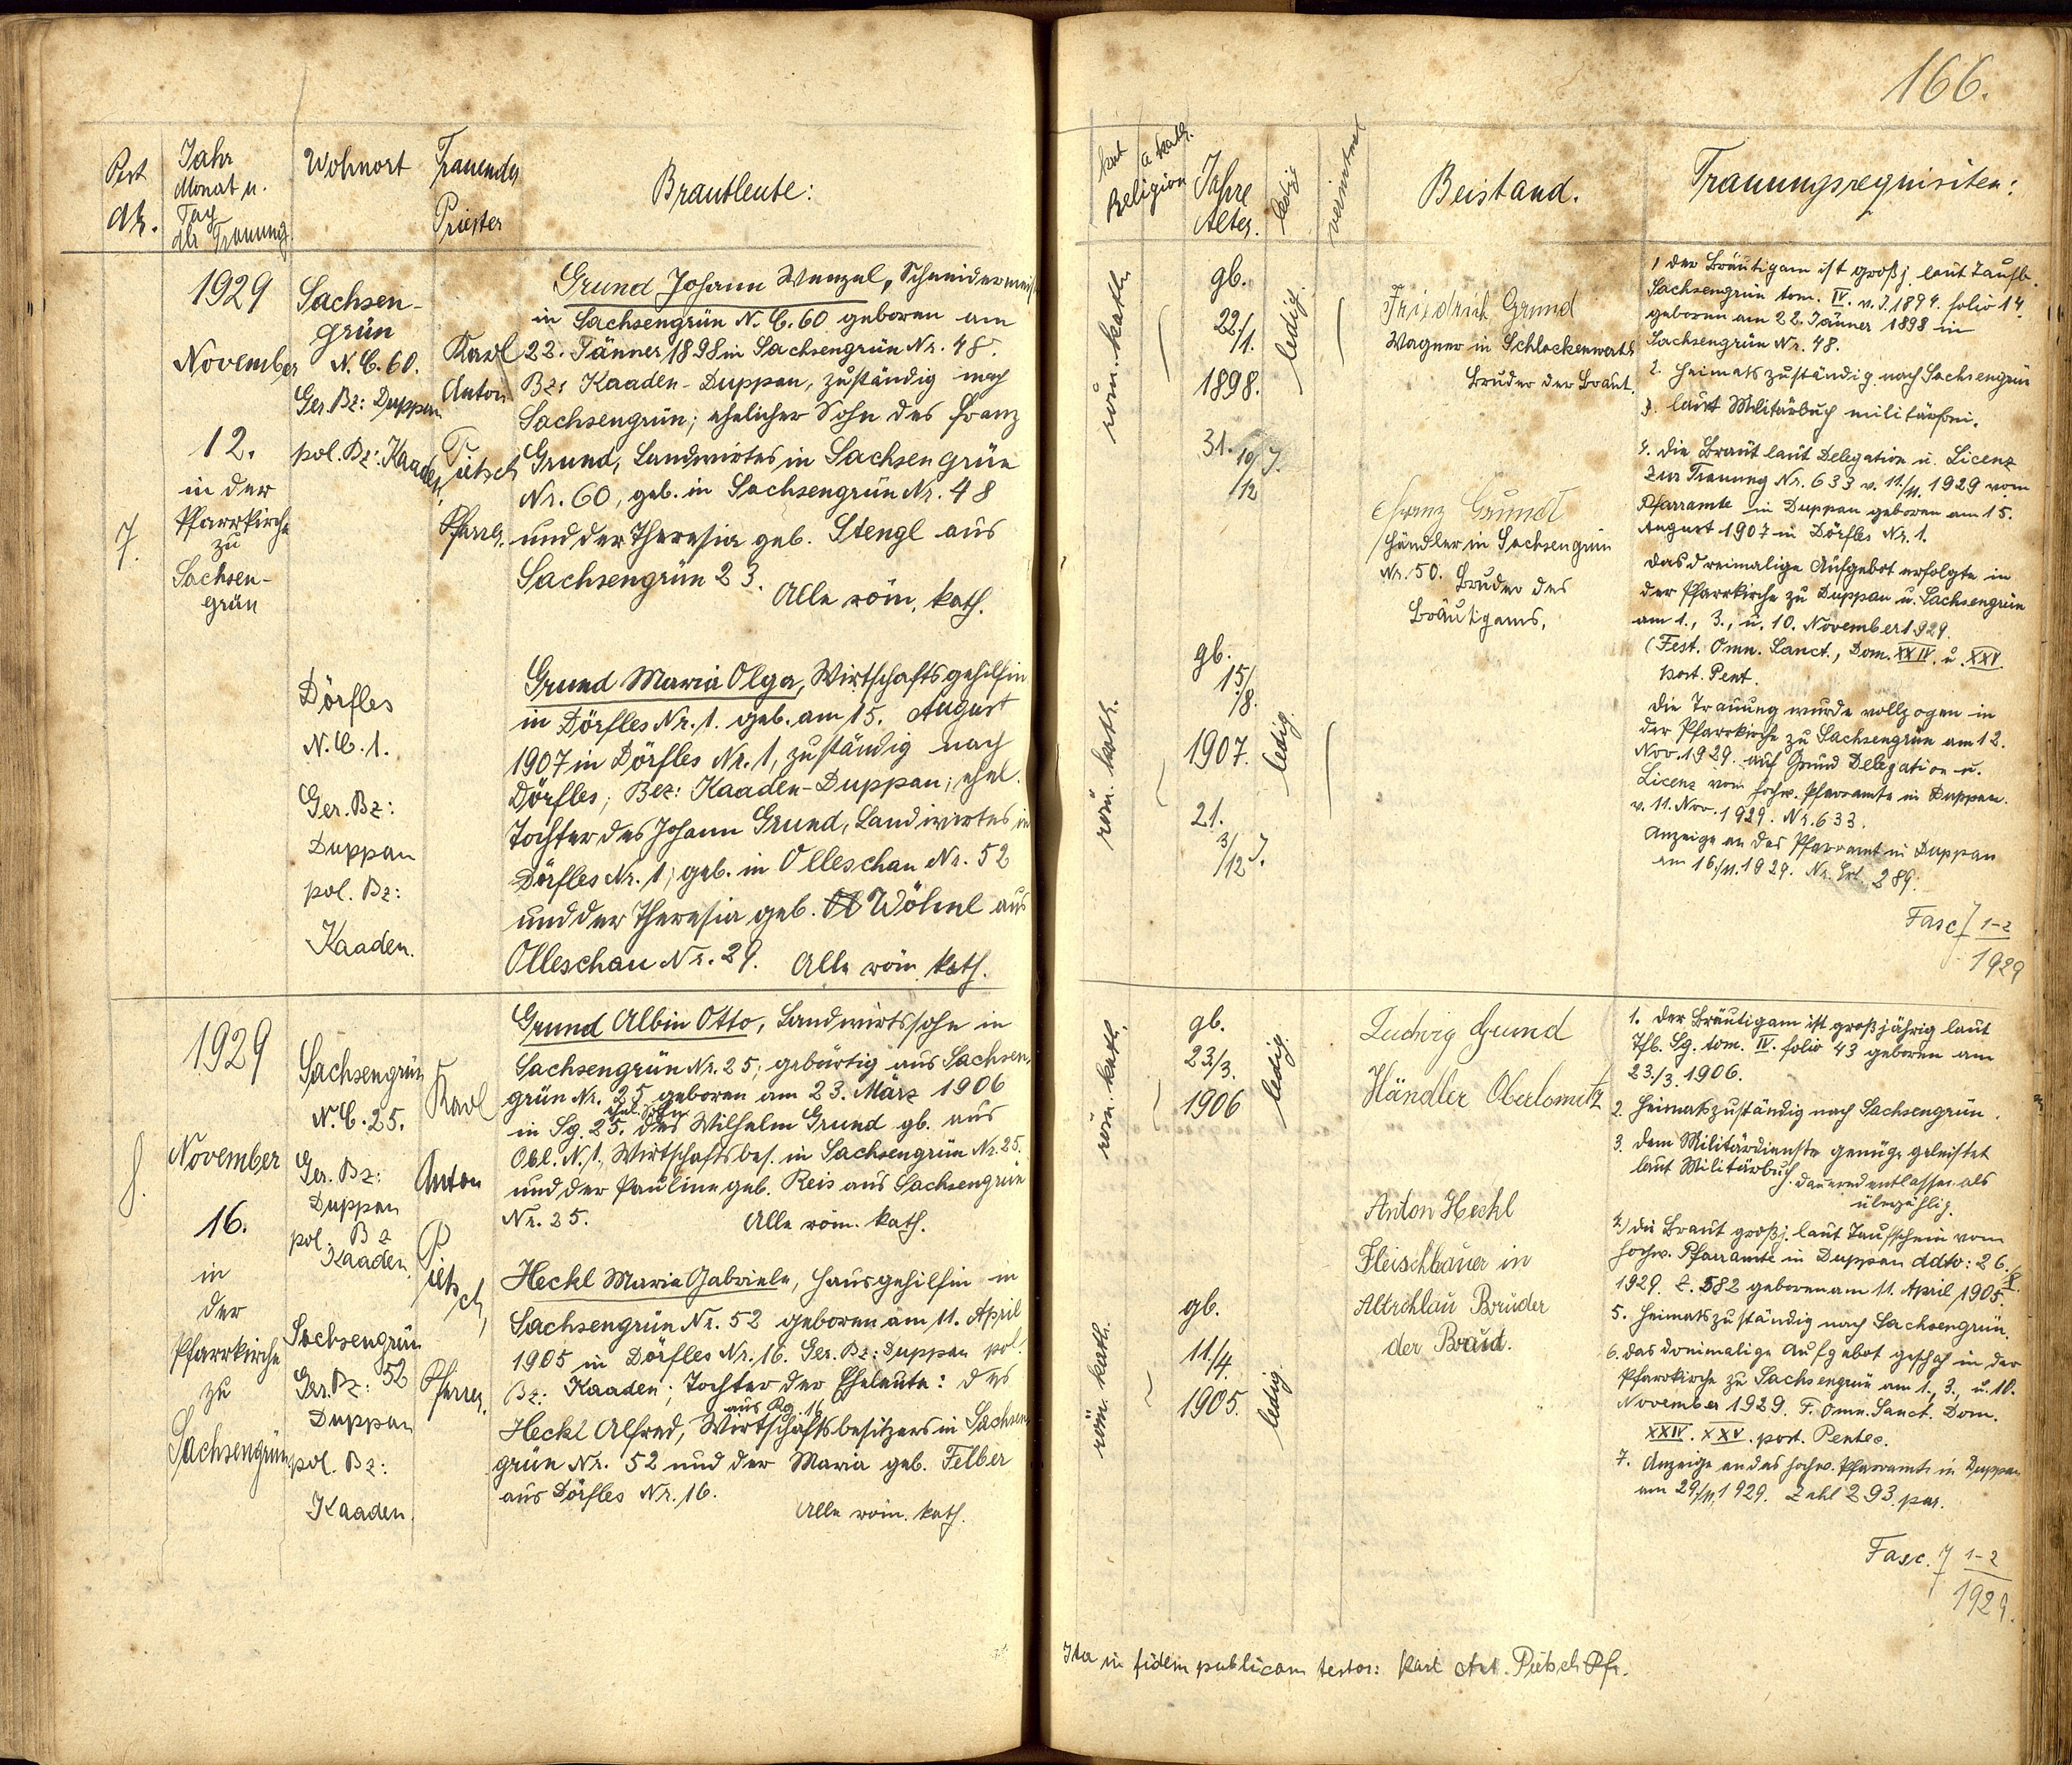 166.
Post
Nr.
Jahr
Monat u.
Tag
der Trauung
Wohnort
Trauender
Priester
Brautleute:
kat
a kath.
Religion
Jahre
Alter.
ledig
verwitwet
Beistand.
Trauungsrequisiten:
7.
1929
November
12.
in der
Pfarrkirche
zu
Sachsen-
grün
Sachsen-
grün
N. C. 60.
Ger. Bz: Duppau
pol. Bz: Kaaden.
Karl
Anton
Pietsch
Pfarrer.
Grund Johann Wenzel, Schneidermeist
in Sachsengrün N. C. 60 geboren am
22. Jänner 1898 in Sachsengrün Nr. 48.
Bz: Kaaden-Duppau, zuständig nach
Sachsengrün; ehelicher Sohn des Franz
Grund, Landwirtes in Sachsengrün
Nr. 60, geb. in Sachsengrün Nr. 48
und der Theresia geb. Stengl aus
Sachsengrün 23.
Alle röm. kath.
Dörfles
N. C. 1.
Ger. Bz:
Duppau
pol. Bz:
Kaaden.
Grund Maria Olga, Wirtschaftsgehilfin
in Dörfles Nr. 1. geb. am 15. August
1907 in Dörfles Nr. 1, zuständig nach
Dörfles; Bez: Kaaden-Duppau; ehel.
Tochter des Johann Grund, Landwirtes in
Dörfles Nr. 1; geb. in Olleschau Nr. 52
und der Theresia geb. Wöhnl aus
Olleschau Nr. 29. Alle röm. kath.
röm. kath.
gb.
22./
1.
1898.
31. 10/
12 J.
ledig.
röm. kath.
gb.
15./
8.
1907.
21.
3/
12 J.
ledig.
Friedrich Grund
Wagner in Schlackenwerth
Bruder der Braut.
Franz Grund
Händler in Sachsengrün
Nr. 50. Bruder des
Bräutigams.
1, der Bräutigam ist großj. laut Taufb.
Sachsengrün tom. IV. v. J. 1894. folio 14.
geboren am 22. Jänner 1898 in
Sachsengrün Nr. 48.
2. Heimatszuständig nach Sachsengrün
3. laut Militärbuch militärfrei.
4. die Braut laut Delegation u. Licenz
zur Trauung Nr. 633 v. 11./11. 1929 vom
Pfarramte in Duppau geboren am 15.
August 1907 in Dörfles Nr. 1.
das dreimalige Aufgebot erfolgte in
der Pfarrkirche zu Duppau u. Sachsengrün
am 1., 3., u. 10. November 1929.
(Fest. Omn. Sanct., Dom. XXIV. u. XXV.
post. Pent.
die Trauung wurde vollzogen in
der Pfarrkirche zu Sachsengrün am 12.
Nov. 1929. auf Grund Delegation u.
Licenz vom hochw. Pfarramte in Duppau.
v. 11. Nov. 1929. Nr. 633.
Anzeige an das Pfarramt in Duppau
am 16./11. 1929. Nr. Exh. 289.
Fasc 7 1-2
1929
8.
1929
November
16.
in
der
Pfarrkirche
zu
Sachsengrün
Sachsengrün
N. C. 25.
Ger. Bz:
Duppau
pol. Bz
Kaaden.
Karl
Anton
Pietsch,
Pfarrer.
Grund Albin Otto, Landwirtssohn in
Sachsengrün Nr. 25; gebürtig aus Sachsen-
grün Nr. 25 geboren am 23. März 1906
in Sg. 25. ehel. Sohn des Wilhelm Grund gb. aus
Obl. N. 1., Wirtschaftsbes. in Sachsengrün Nr. 25.
und der Pauline geb. Reis aus Sachsengrün
Nr. 25. Alle röm. kath.
Sachsengrün
Ger. Bz: 52
Duppau
pol. Bz:
Kaaden.
Heckl Maria Gabriele, Hausgehilfin in
Sachsengrün Nr. 52 geboren am 11. April
1905 in Dörfles Nr. 16. Ger. Bz: Duppau pol.
Bz: Kaaden; Tochter der Eheleute: des
Heckl Alfred, aus Rg. 16 Wirtschaftsbesitzers in Sachsen-
grün Nr. 52 und der Maria geb. Felber
aus Dörfles Nr. 16.
Alle röm. kath.
röm. kath.
gb.
23./3.
1906
ledig.
röm. kath.
gb.
11./4.
1905.
ledig.
Ludwig Grund
Händler Oberlomitz
Anton Heckl
Fleischhauer in
Altrohlau Bruder
der Braut.
1. der Bräutigam ist großjährig laut
Tfb. Sg. tom. IV. folio 43 geboren am
23./3. 1906.
2. Heimatszuständig nach Sachsengrün.
3. dem Militärdienste genüge geleistet
laut Militärbuch. dauernd entlassen als
überzählig.
4.) die Braut großj. laut Taufschein vom
hochw. Pfarramte in Duppau ddto: 26./X.
1929. Z. 582 geboren am 11. April 1905.
5. Heimatszuständig nach Sachsengrün.
6. das dreimalige Aufgebot geschah in der
Pfarrkirche zu Sachsengrün am 1., 3., u. 10.
November 1929. F. Omn. Sanct. Dom.
XXIV. XXV. post. Pentec.
7. Anzeige an das hochw. Pfarramte in Duppau
am 29./11. 1929. Zahl 293. par.
Fasc. 7 1-2
1929.
Ita in fidem publicam testor: Karl Ant. Pietsch Pfr.